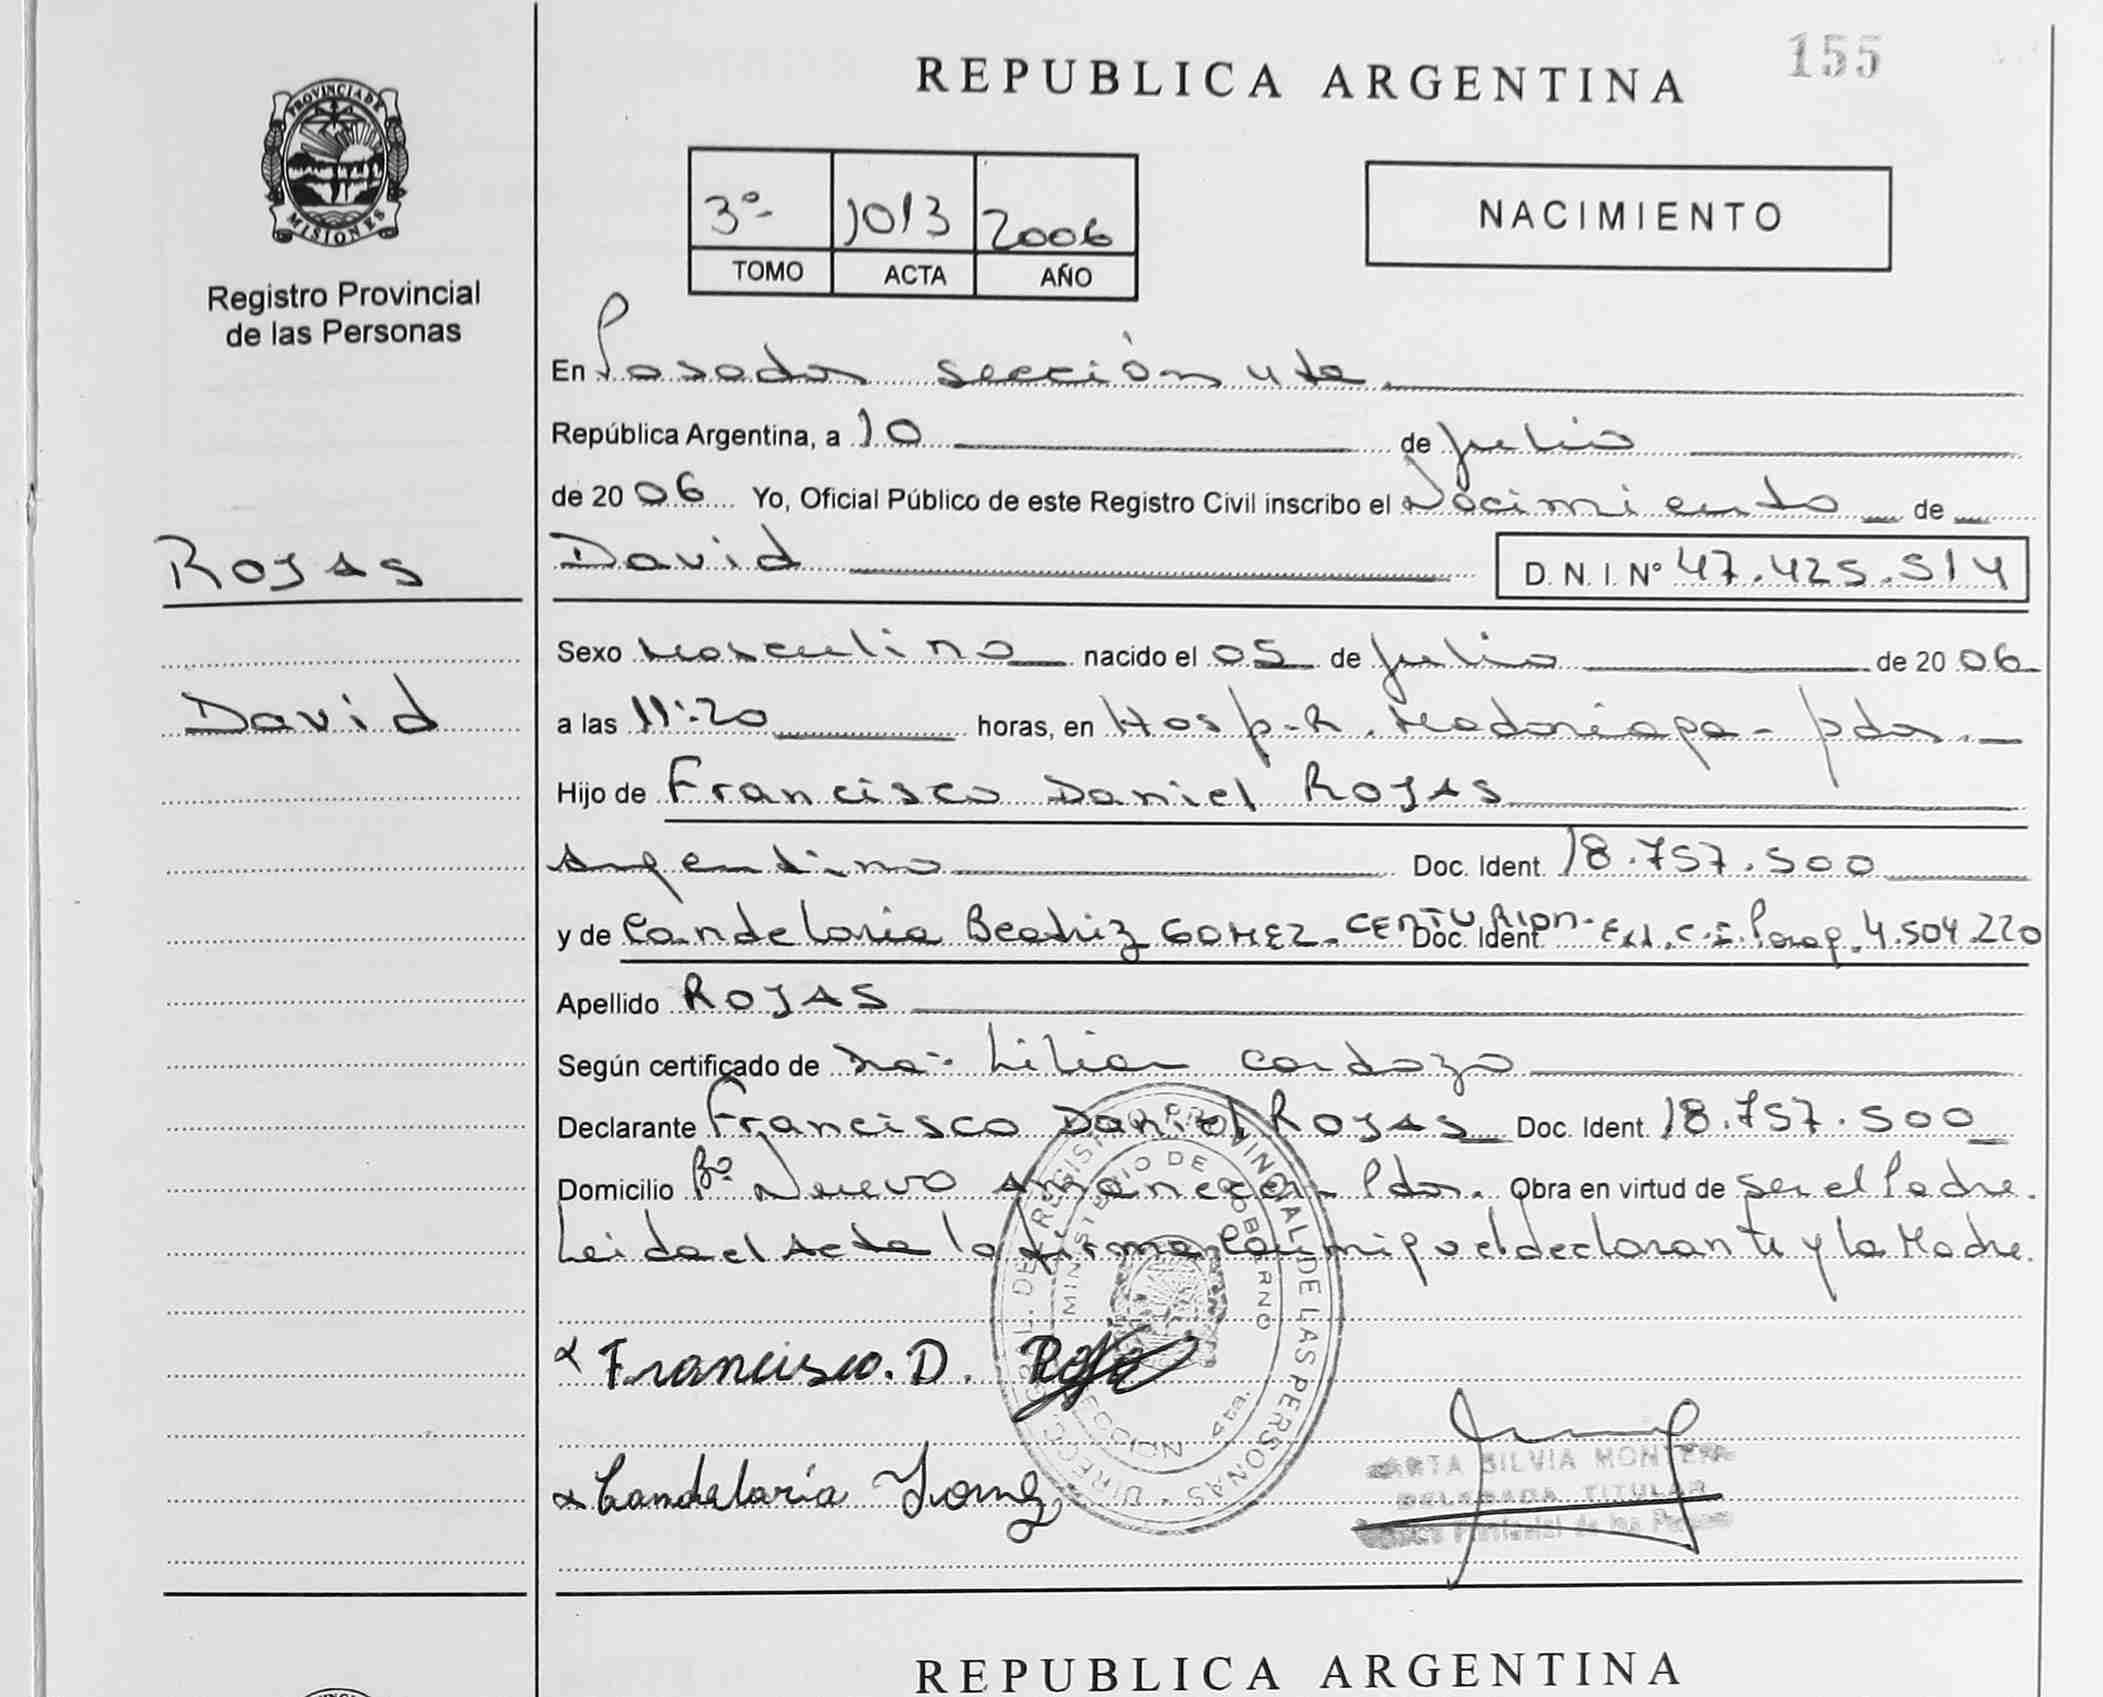 155
REPUBLICA ARGENTINA
PROVINCIA DE
MISIONES
Registro Provincial
de las Personas
3º 1013 2006
TOMO ACTA AÑO
NACIMIENTO
En Posadas sección 4ta
República Argentina, a 10 de Julio
de 2006 Yo, Oficial Público de este Registro Civil inscribo el Nacimiento de
ROJAS
David D. N. I. Nº 47.425.514
Sexo Masculino nacido el 05 de Julio de 2006
David
a las 11:20 horas, en Hosp. R. Madariaga - pdas.
Hijo de Francisco Daniel ROJAS
Argentino Doc. Ident. 18.757.500
y de Candelaria Beatriz GOMEZ CENTURION Doc. Ident. Ext. C.I. Parag. 4.504.220
Apellido ROJAS
Según certificado de Dra. Lilian Cardozo
Declarante Francisco Daniel ROJAS Doc. Ident. 18.757.500
Domicilio Bº Nuevo Amanecer - Pdas. Obra en virtud de ser el Padre.
Leida el Acta la firman conmigo el declarante y la Madre.
DIRECC. GRAL. DEL REGISTRO PROVINCIAL DE LAS PERSONAS
MINISTERIO DE GOBIERNO
4ta.
Francisco. D. Rojas
Candelaria Gomez
SILVIA
TITULAR
Provincial de las
REPUBLICA ARGENTINA